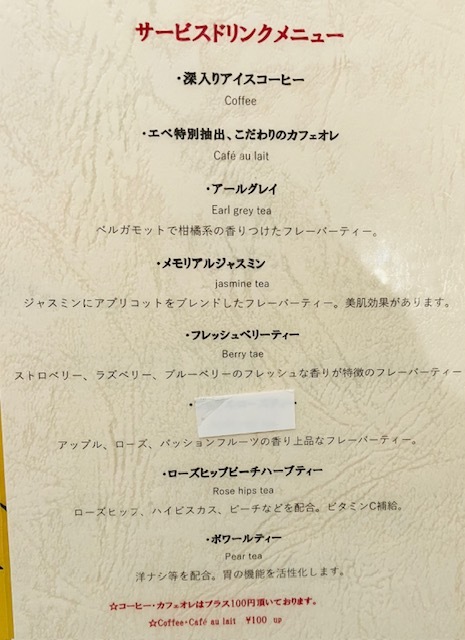 サービスドリンクメニュー
・深入りアイスコーヒー
Coffee
・エペ特別抽出、こだわりのカフェオレ
Café au lait
・アールグレイ
Earl grey tea
ベルガモットで柑橘系の香りつけたフレーバーティー。
・メモリアルジャスミン
jasmine tea
ジャスミンにアプリコットをブレンドしたフレーバーティー。美肌効果があります。
・フレッシュベリーティー
Berry tae
ストロベリー、ラズベリー、ブルーベリーのフレッシュな香りが特徴のフレーバーティー
・
アップル、ローズ、パッションフルーツの香り上品なフレーバーティー。
・ローズヒップピーチハーブティー
Rose hips tea
ローズヒップ、ハイビスカス、ピーチなどを配合。ビタミンC補給。
・ポワールティー
Pear tea
洋ナシ等を配合。胃の機能を活性化します。
☆コーヒー・カフェオレはプラス100円頂いております。
☆Coffee・Café au lait ¥100 up